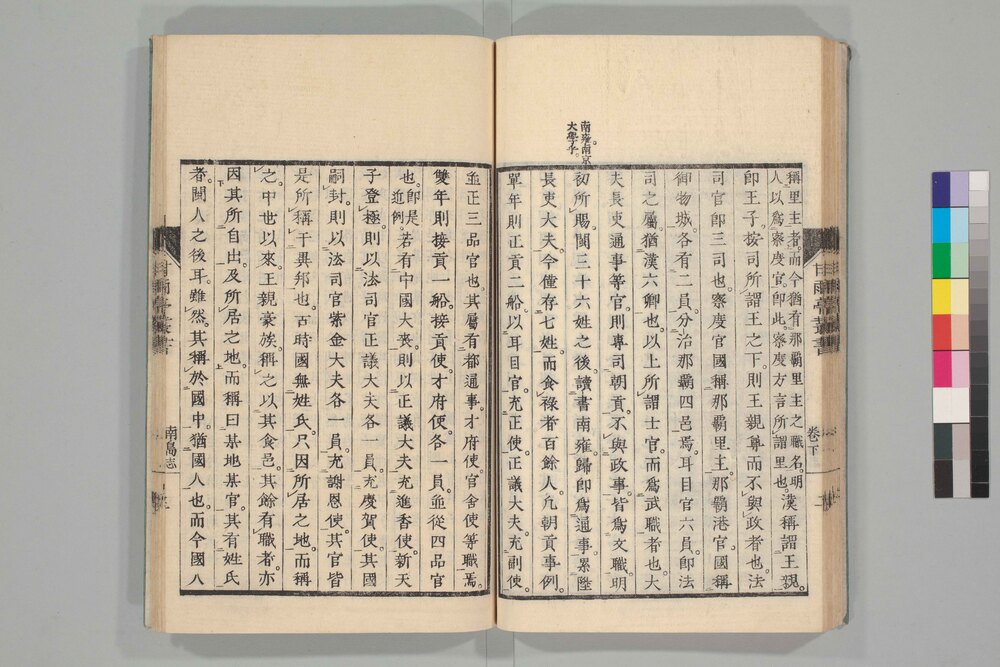 南雍。南京
大學乎。
稱里主者。而今猶有那覇里主之職名。明
人以爲寮度官。卽此。寮度方言所謂里也。漢稱謂王親。
卽王子。按司所謂王之下。則王親尊而不與政者也。法
司官卽三司也。寮度官國稱那覇里主。那覇港官國稱
御物城。各有二員。分治那覇四邑焉。耳目官六員。卽法
司之屬。猶漢六卿也。以上所謂士官。而爲武職者也。大
夫長吏通事等官。則專司朝貢。不與政事。皆爲文職。明
初所賜閩三十六姓之後。讀書南雍。歸卽爲通事。累陞
長吏大夫。今僅存七姓。而食祿者百餘人。凡朝貢事例。
單年則正貢二船。以耳目官充正使。正議大夫充副使。
並正三品官也。其屬有都通事。才府使。官舍使等職焉。
雙年則接貢一船。接貢使。才府使各一員。並從四品官
也。卽是近例。若有中國大喪。則以正議大夫充進香使。新天
子登極。則以法司官正議大夫各一員。充慶賀使。其國
嗣封。則以法司官紫金大夫各一員。充謝恩使。其官皆
是所稱于異邦也。古時國無姓氏。只因所居之地。而稱
之。中世以來王親豪族。稱之以其食邑。其餘有職者。亦
因其所自出。及所居之地。而稱曰某地某官。其有姓氏
者。閩人之後耳。雖然。其稱於國中。猶國人也。而今國人
甘雨亭叢書
卷之下
南島志